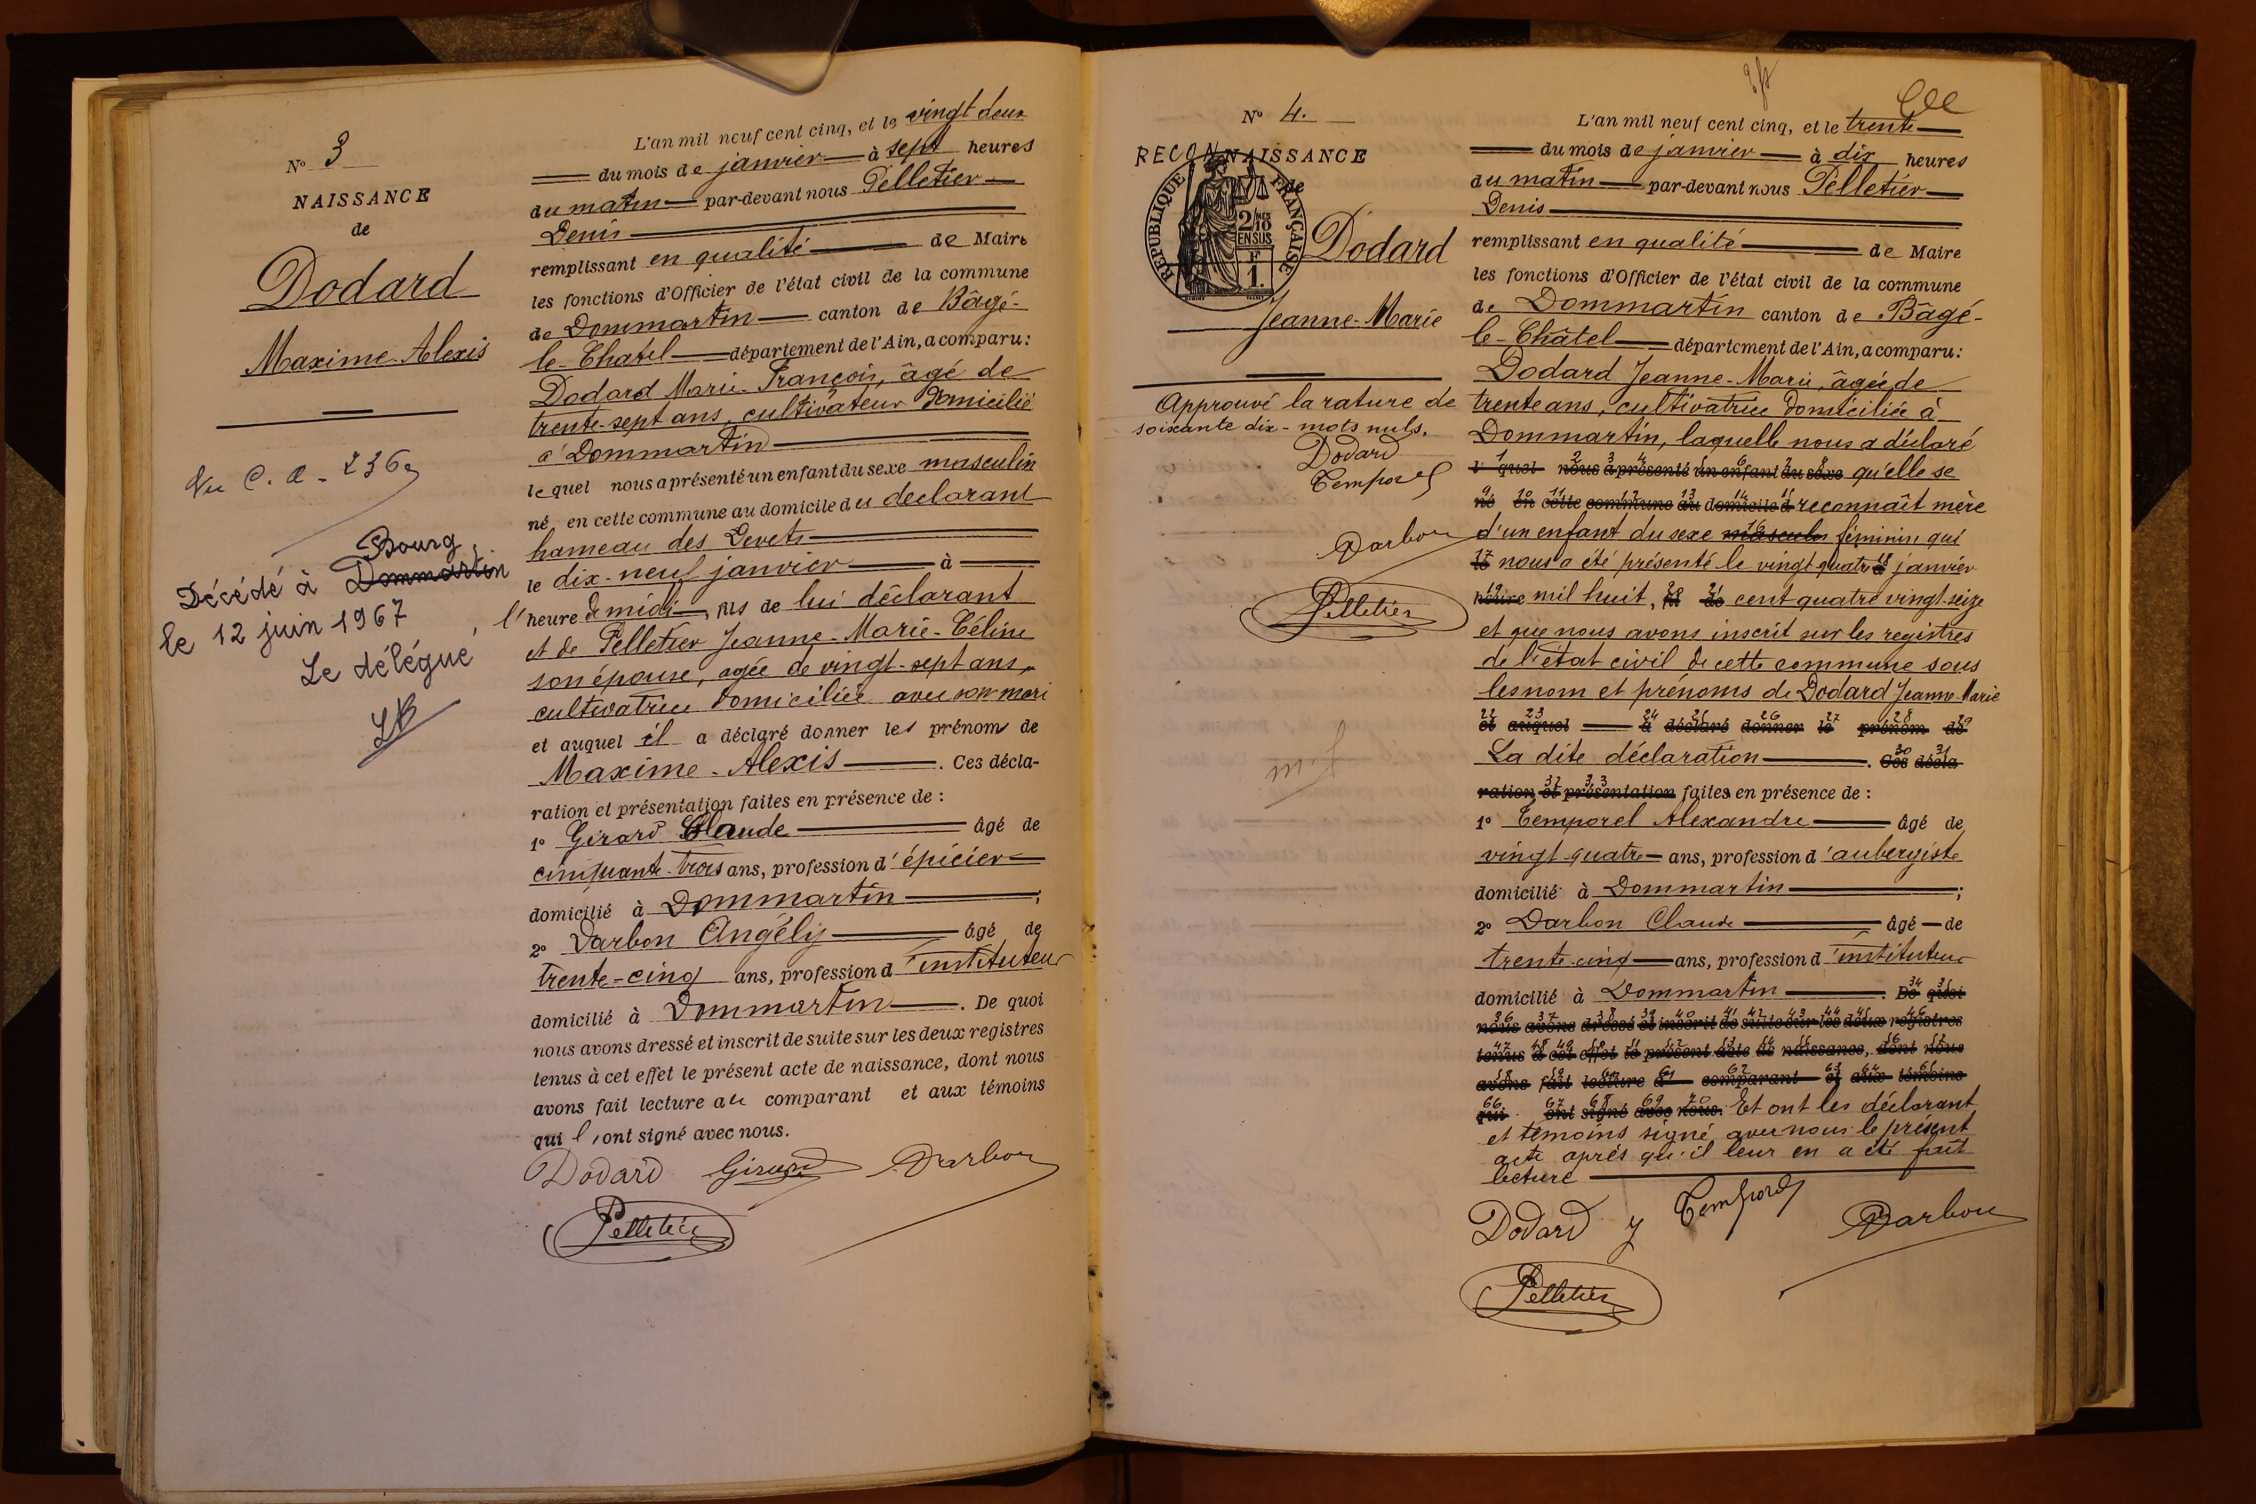 N° 3
NAISSANCE
de
Dodard
Maxime-Alexis
Vu C. a - 236
Bourg
Décédé à Dommartin
le 12 juin 1967
Le délégué
L'an mil neuf cent cinq, et le vingt deux
du mois de janvier à sept heures
du matin par-devant nous Pelletier
Denis
remplissant en qualité de Maire
les fonctions d'Officier de l'état civil de la commune
de Dommartin canton de Bâgé-
le-Chatel département de l'Ain, a comparu:
Dodard Marie-François, âgé de
trente-sept ans, cultivateur domicilié
à Dommartin
lequel nous a présenté un enfant du sexe masculin
né en cette commune au domicile du déclarant
hameau des Devets
le dix-neuf janvier à
l'heure de midi, fils de lui déclarant
et de Pelletier Jeanne-Marie-Céline
son épouse, agée de vingt-sept ans,
cultivatrice domiciliée avec son mari
et auquel il a déclaré donner les prénoms de
Maxime-Alexis. Ces décla-
ration et présentation faites en présence de :
1° Girard Claude âgé de
cinquante-trois ans, profession d'épicier
domicilié à Dommartin;
2° Darbon Angély âgé de
trente-cinq ans, profession d'instituteur
domicilié à Dommartin. De quoi
nous avons dressé et inscrit de suite sur les deux registres
tenus à cet effet le présent acte de naissance, dont nous
avons fait lecture au comparant et aux témoins
qui l'ont signé avec nous.
Dodard Girard Darbon
Pelletier
N° 4.
RECONNAISSANCE
de
RÉPUBLIQUE FRANÇAISE
2/10 EN SUS
F
1.
Dodard
Jeanne-Marie
Approuvé la rature de
soixante dix-mots nuls.
Dodard
Temporel
Darbon
Pelletier
L'an mil neuf cent cinq, et le trente
du mois de janvier à dix heures
du matin par-devant nous Pelletier
Denis
remplissant en qualité de Maire
les fonctions d'Officier de l'état civil de la commune
de Dommartin canton de Bâgé-
le-Châtel département de l'Ain, a comparu:
Dodard Jeanne-Marie, âgée de
trente ans, cultivatrice domiciliée à
Dommartin, laquelle nous a déclaré
l quel nous a présenté un enfant du sexe qu'elle se
né en cette commune au domicile d reconnaît mère
d'un enfant du sexe masculin féminin qui
le nous a été présenté le vingt quatre à janvier
heure mil huit, fil de cent quatre vingt-seize
et que nous avons inscrit sur les registres
de l'état civil de cette commune sous
les nom et prénoms de Dodard Jeanne-Marie
et auquel a déclaré donner le prénom de
La dite déclaration. Ces décla
ration et présentation faites en présence de :
1° Temporel Alexandre âgé de
vingt-quatre ans, profession d'aubergiste
domicilié à Dommartin;
2° Darbon Claude âgé de
trente-cinq ans, profession d'instituteur
domicilié à Dommartin. De quoi
nous avons dressé et inscrit de suite sur les deux registres
tenus à cet effet le présent acte de naissance, dont nous
avons fait lecture a comparant et aux témoins
qui ont signé avec nous. Et ont les déclarant
et témoins signé avec nous le présent
acte après qu'il leur en a été fait
lecture
Dodard J Temporel Darbon
Pelletier